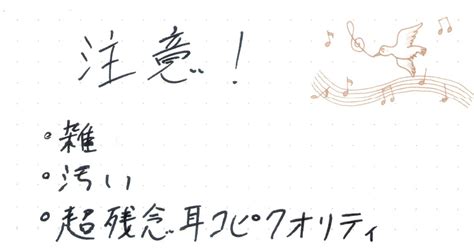 注意!
・雑
・汚い
・超残念耳コピクオリティ